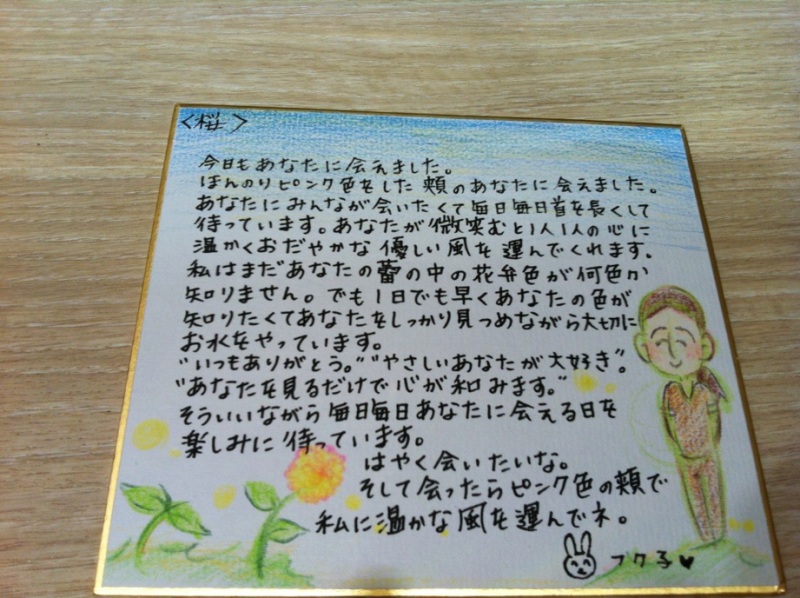 〈桜〉
今日もあなたに会えました。
ほんのりピンク色をした頬のあなたに会えました。
あなたにみんなが会いたくて毎日毎日首を長くして
待っています。あなたが微笑むと1人1人の心に
温かくおだやかな優しい風を運んでくれます。
私はまだあなたの蕾の中の花弁色が何色か
知りません。でも1日でも早くあなたの色が
知りたくてあなたをしっかり見つめながら大切に
お水をやっています。
"いつもありがとう。""やさしいあなたが大好き"。
"あなたを見るだけで心が和みます。"
そういいながら毎日毎日あなたに会える日を
楽しみに待っています。
はやく会いたいな。
そして会ったらピンク色の頬で
私に温かな風を運んでネ。
フク子♥